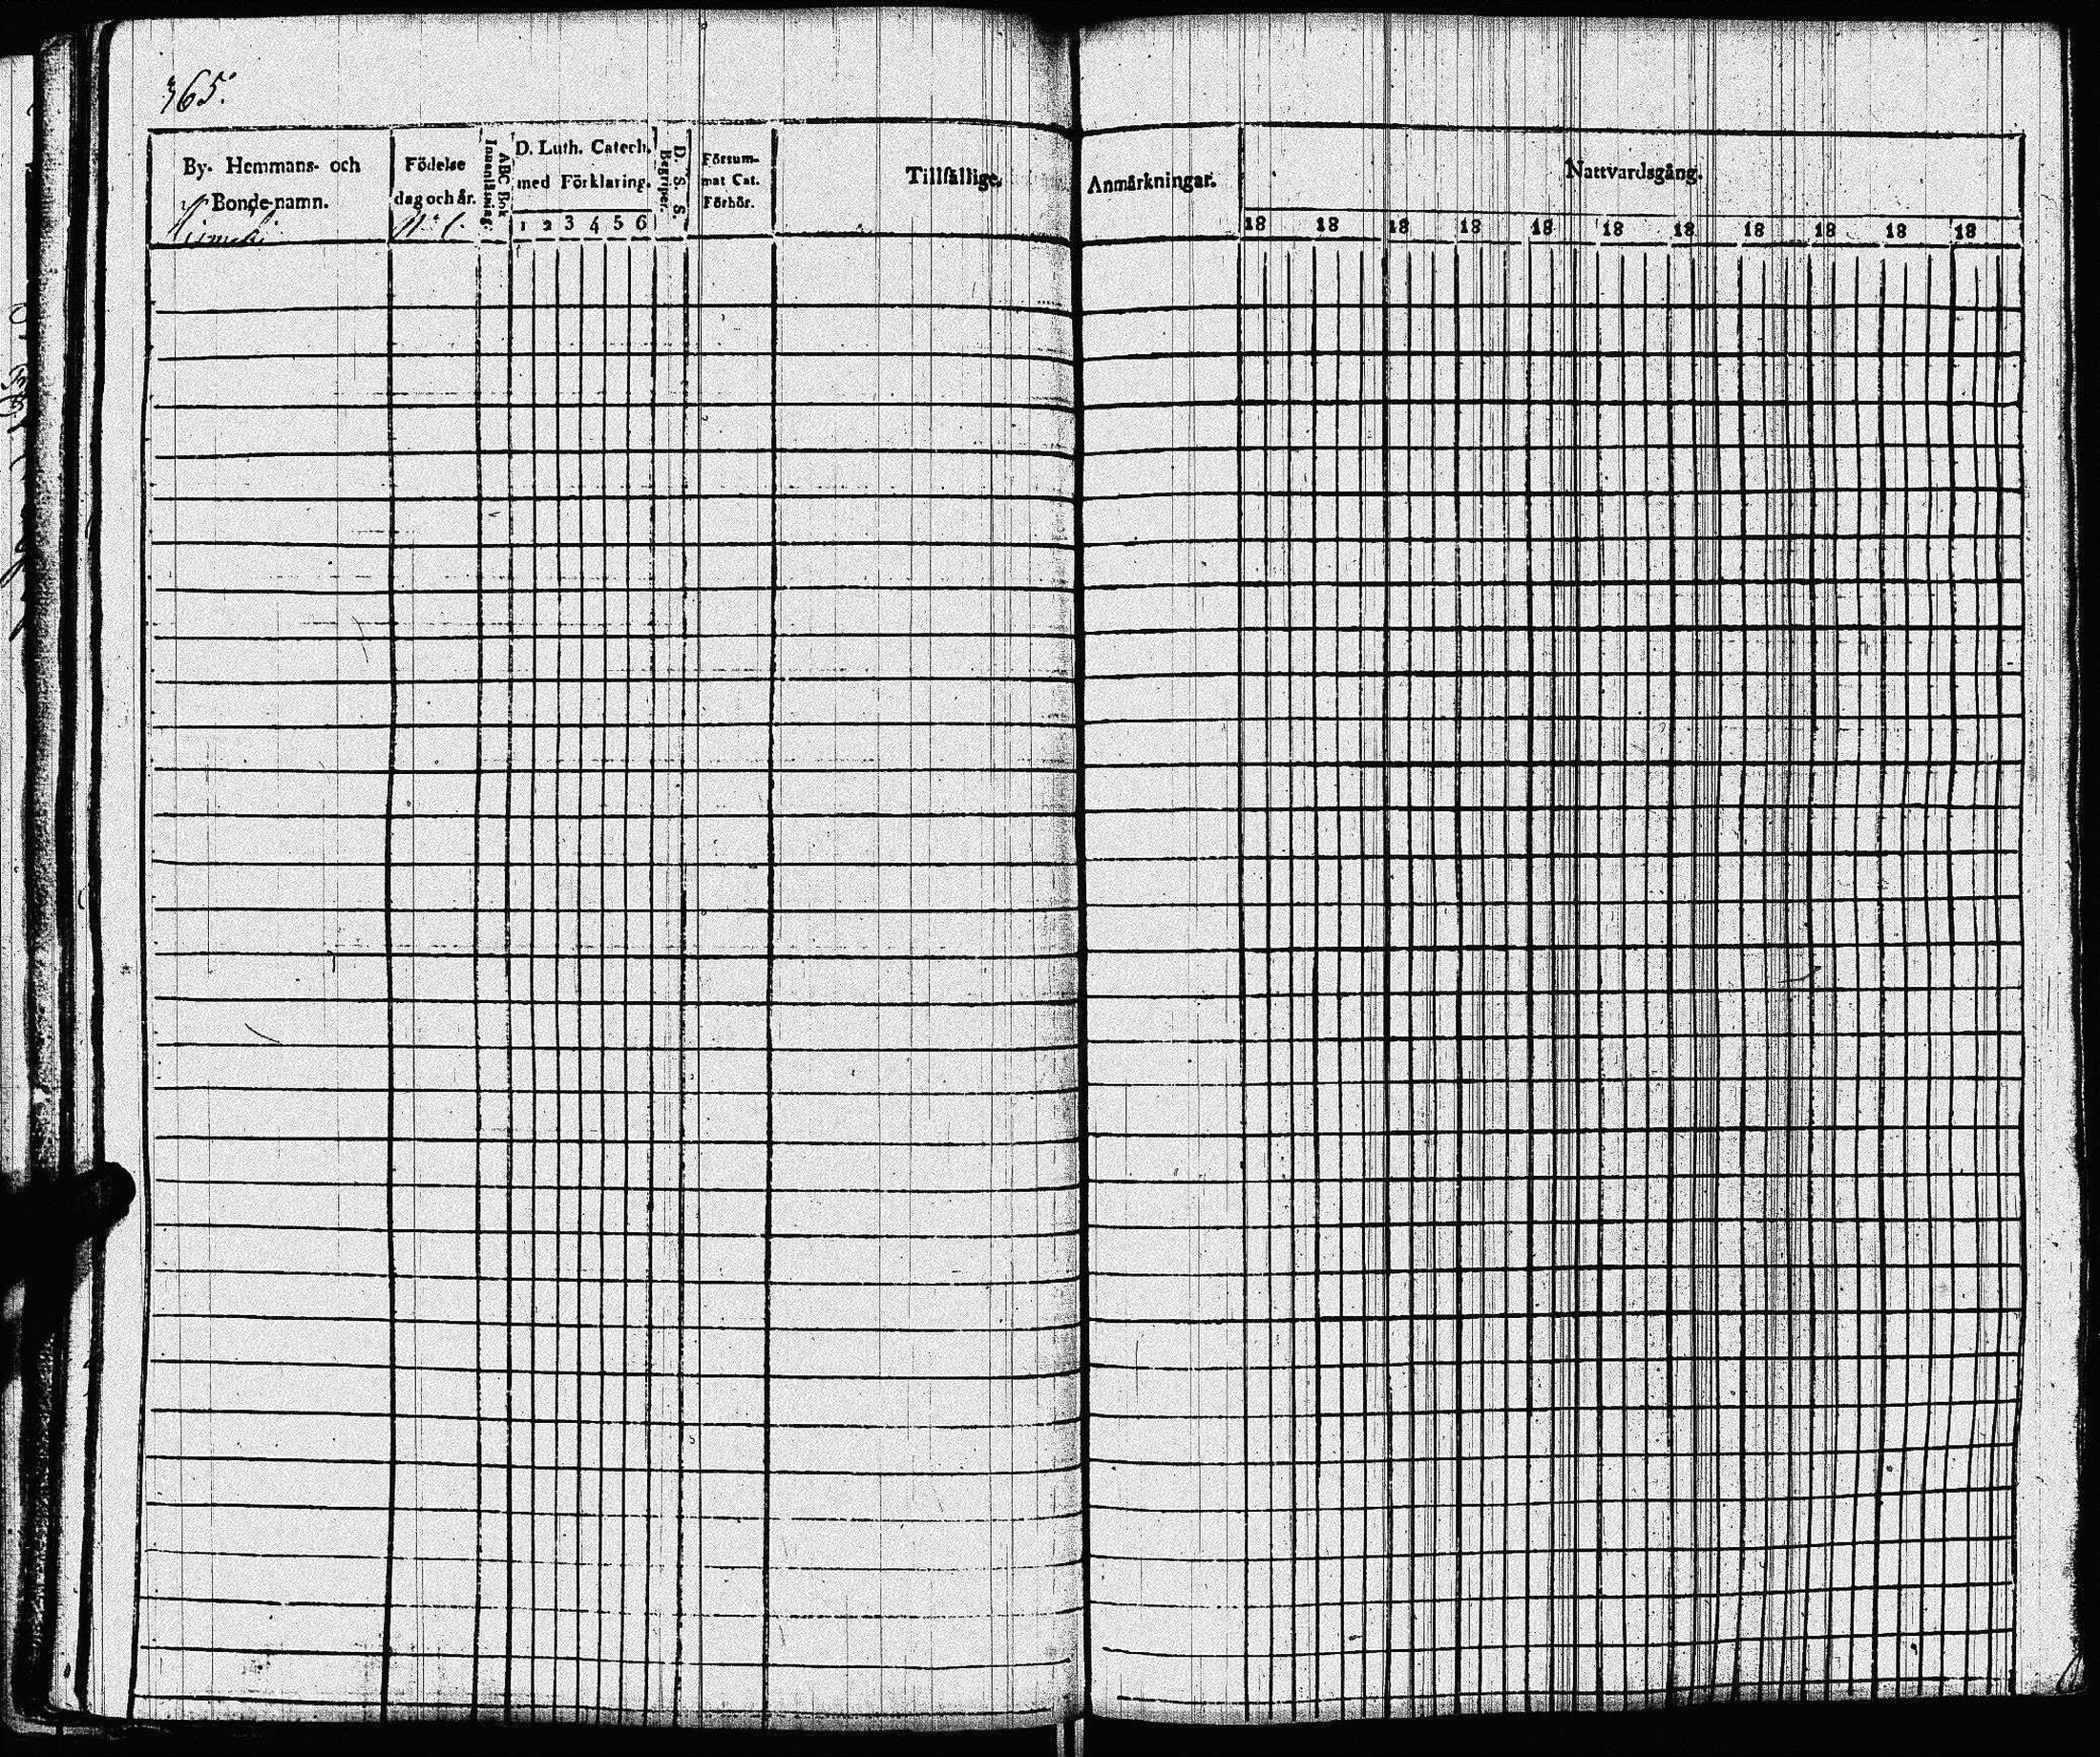 365.
By. Hemmans- och
Bonde-namn.
Födelse
dag och år.
No 6.
ABC Bok
Innanläsning.
D. Luth. Catech.
med Förklaring.
1 2 3 4 5 6
D. S. S.
Begriper.
Försum-
mat Cat.
Förhör.
Tillfällige
Anmärkningar.
Nattvardsgång.
18 18 18 18 18 18 18 18 18 18 18